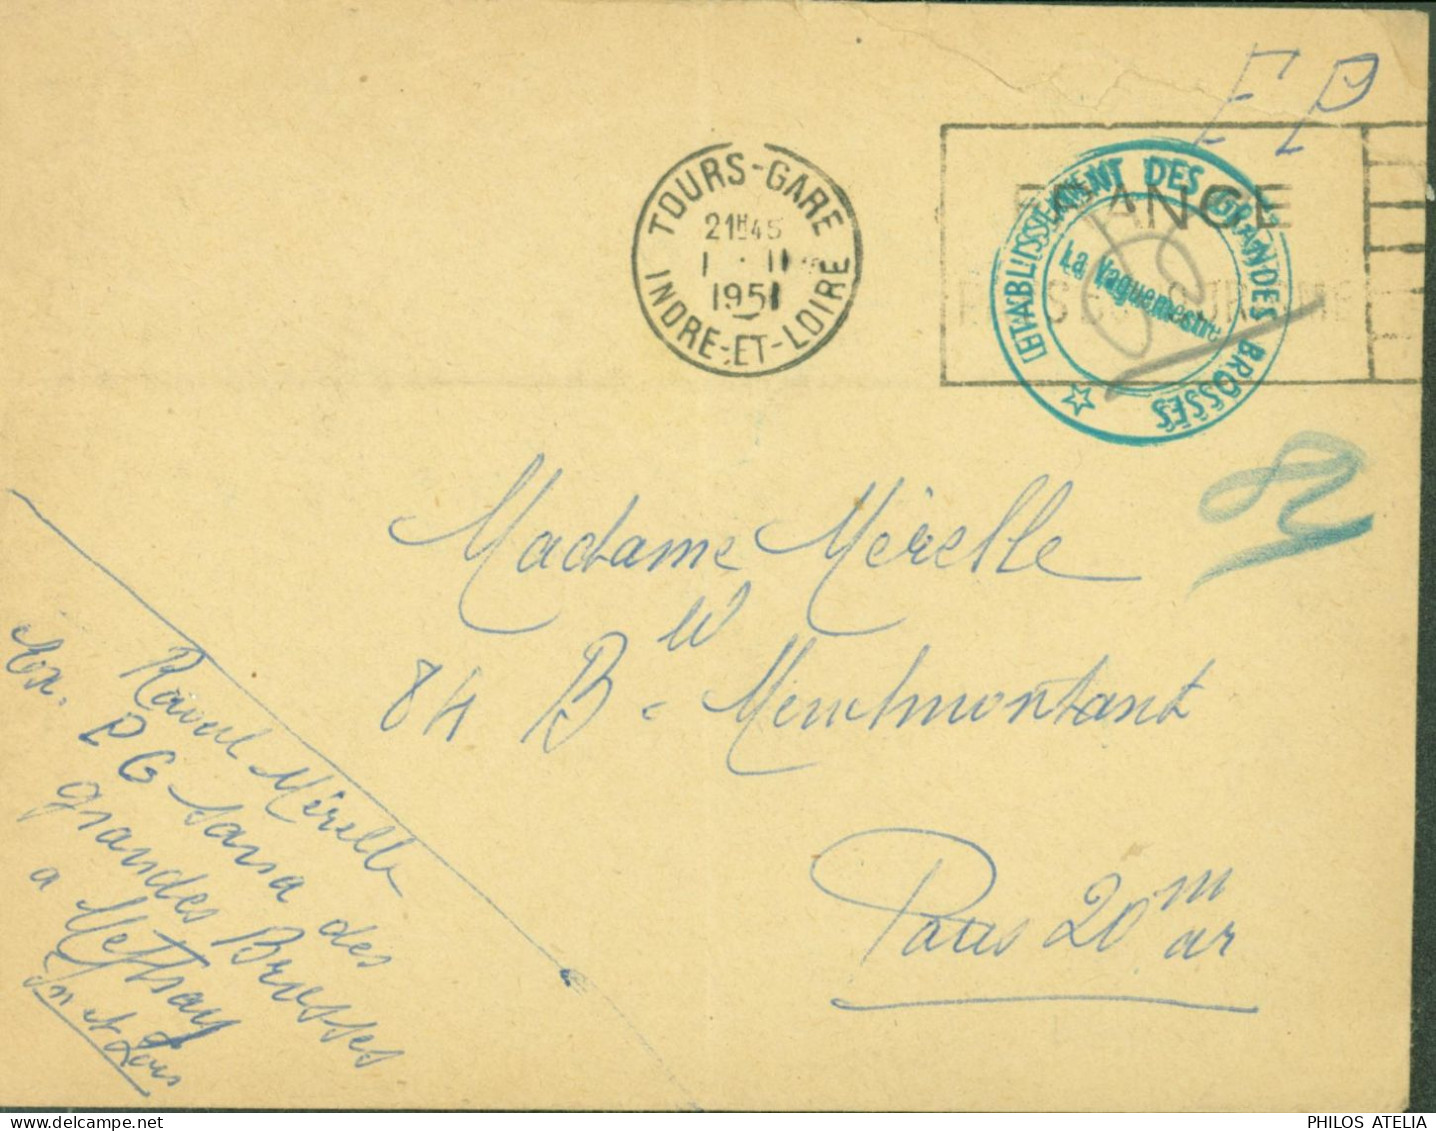 F P
TOURS-GARE
21H45
1 - 11
1951
INDRE-ET-LOIRE
FRANCE
ETABLISSEMENT DES GRANDES BROSSES
La Vaguemestre
Madame Mérelle
84 Bd Menilmontant
Paris 20m
ar
Ex. Raoul Mérelle
P G Sana des
grandes Brosses
a Mettray
In et Loir
PHILOS ATELIA